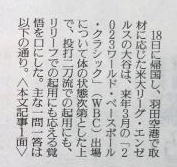 18日に帰国し、羽田空港で取
材に応じた米大リーグ・エンゼ
ルスの大谷は、来年3月の「2
023ワールド・ベースボール
・クラシック」（WBC）出場
について体の状態次第とした上
で、投打二刀流での起用にも、
リリーフでの起用にも応える覚
悟を口にした。主な一問一答は
以下の通り。〈本文記事1面〉